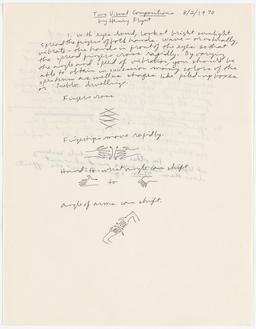 Two Visual Compositions 8/2/1970
by Henry Flynt
1. With eyes closed, look at bright sunlight
spread the fingers of both hands. Wave - or actually,
vibrate - the hands in front of the eyes so that
the spread fingers cross rapidly. By varying
the angle and speed of vibration you should be
able to obtain an illusion many colors of the
spectrum as well as shapes like piled-up boxes
or Pueblo dwellings.
Fingers cross
Fingertips move rapidly.
Hand-to-wrist angle can shift.
to
angle of arms can shift.